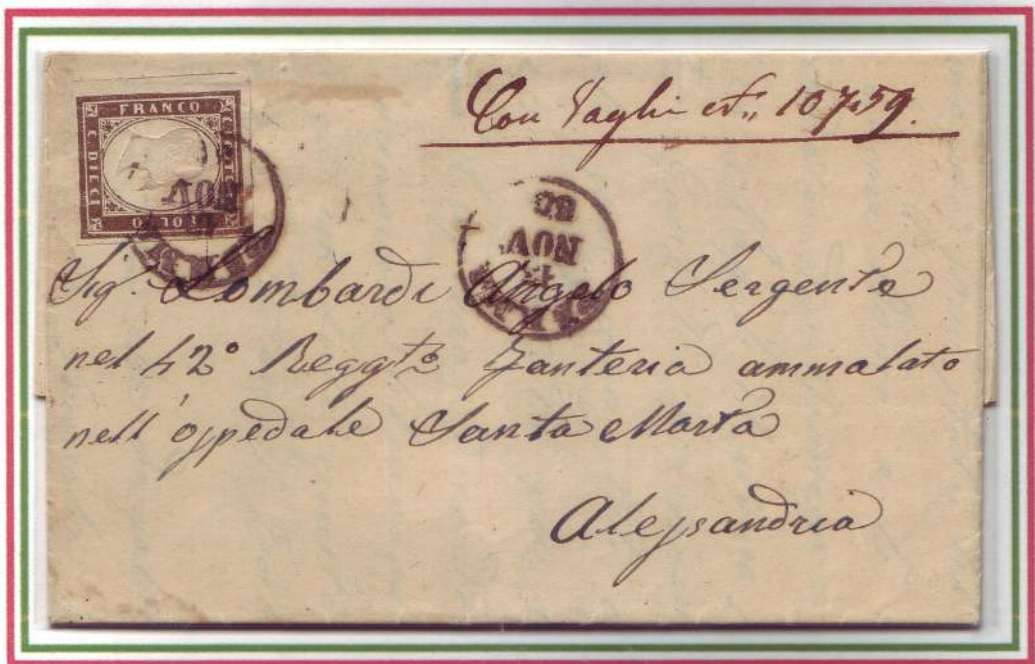 FRANCO
C. DIECI
BOLLO
NOV
Con Vaglia N.° 107,59.
62
NOV
Sig.r Lombardi Angelo Sergente
nel 42° Regg.to Fanteria ammalato
nell'ospedale Santa Marta
Alessandria